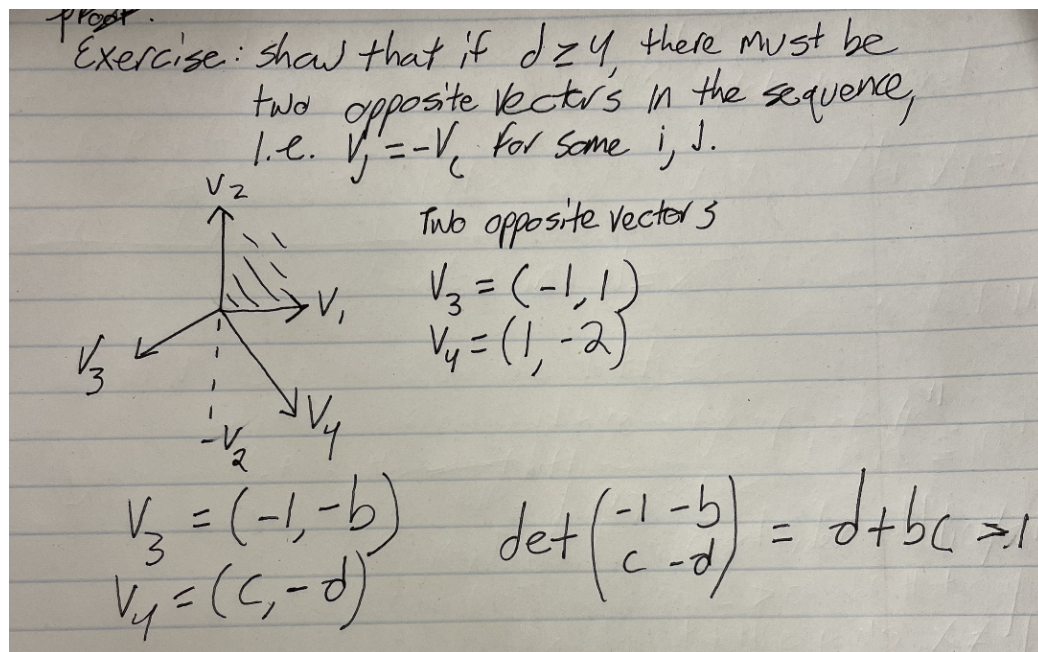 proof.
Exercise: show that if d ≥ 4, there must be
two opposite vectors in the sequence,
i.e. Vj = -Vi for some i, j.
V2
Two opposite vectors
V3 = (-1, 1)
V1
V4 = (1, -2)
V3
V4
-V2
V3 = (-1, -b)
det(-1 -b
c -d) = d+bc > 1
V4 = (c, -d)